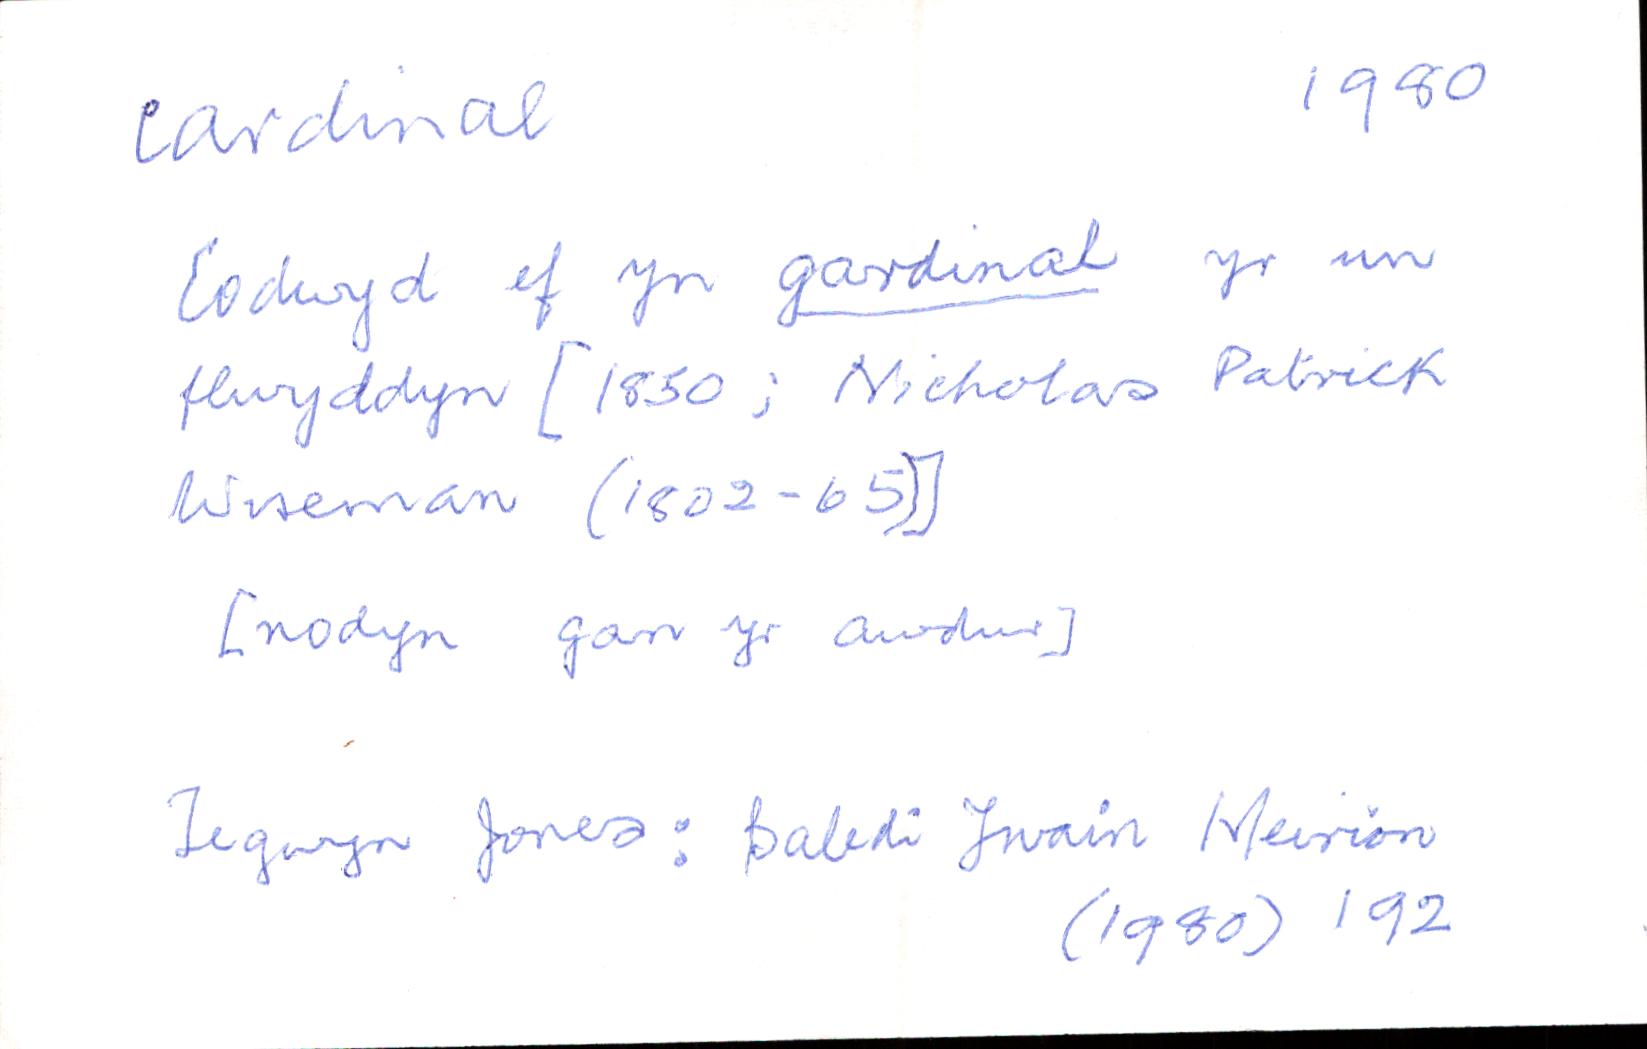 cardinal 1980
Codwyd ef yn gardinal yr un
flwyddyn [1850; Nicholas Patrick
Wiseman (1802-65)]
[nodyn gan yr awdur]
Tegwyn Jones: Baledi Ywain Meirion
(1980) 192